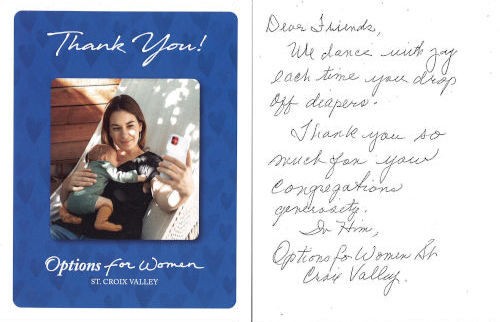 Thank You!
Options for Women
ST. CROIX VALLEY
Dear Friends,
We dance with joy
each time you drop
off diapers.
Thank you so
much for your
congregations
generosity.
In Him,
Options for Women St
Croix Valley.